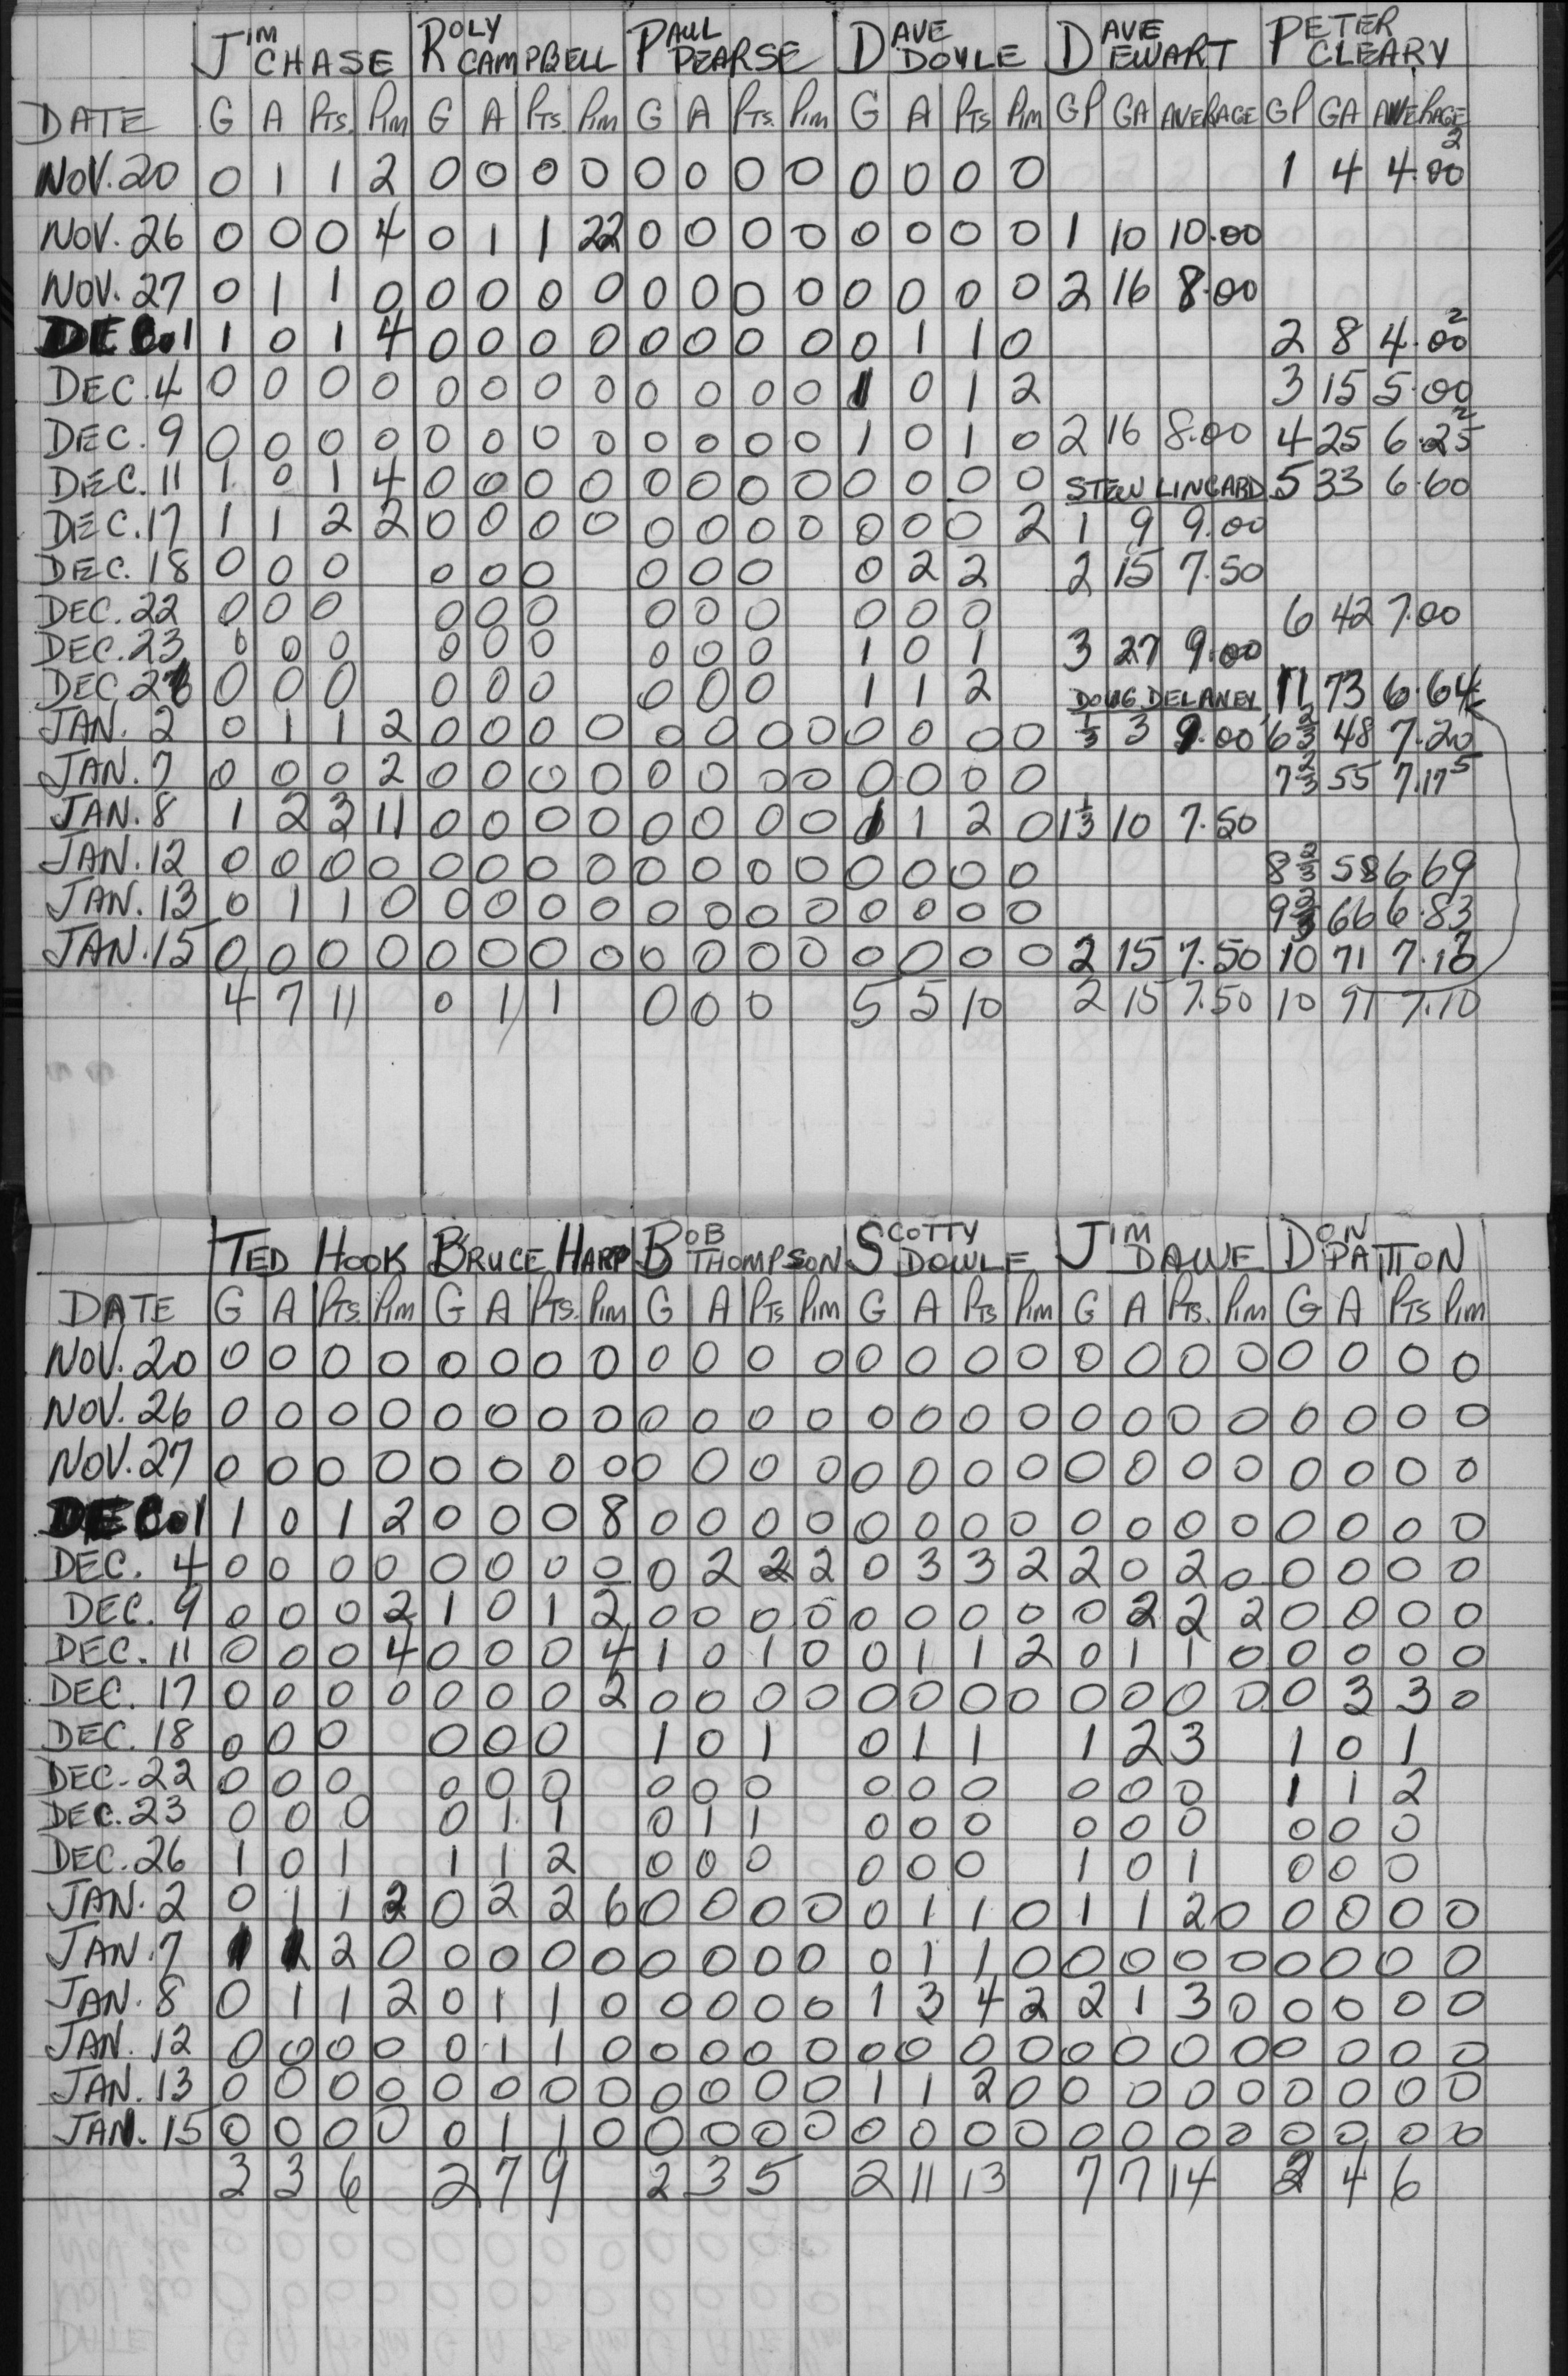 JIM CHASE ROLY CAMPBELL PAUL PEARSE DAVE DOYLE DAVE EWART PETER CLEARY
DATE G A PTS. PIM G A PTS. PIM G A PTS. PIM G A PTS PIM GP GA AVERAGE GP GA AVERAGE
NOV. 20 0 1 1 2 0 0 0 0 0 0 0 0 0 0 0 0 1 4 4.00 2
NOV. 26 0 0 0 4 0 1 1 22 0 0 0 0 0 0 0 0 1 10 10.00
NOV. 27 0 1 1 0 0 0 0 0 0 0 0 0 0 0 0 0 2 16 8.00
DEC. 1 1 0 1 4 0 0 0 0 0 0 0 0 0 1 1 0 2 8 4.00 2
DEC. 4 0 0 0 0 0 0 0 0 0 0 0 0 1 0 1 2 3 15 5.00
DEC. 9 0 0 0 0 0 0 0 0 0 0 0 0 1 0 1 0 2 16 8.00 4 25 6.25 2
DEC. 11 1 0 1 4 0 0 0 0 0 0 0 0 0 0 0 0 STEW LINGARD 5 33 6.60
DEC. 17 1 1 2 2 0 0 0 0 0 0 0 0 0 0 0 2 1 9 9.00
DEC. 18 0 0 0 0 0 0 0 0 0 0 2 2 2 15 7.50
DEC. 22 0 0 0 0 0 0 0 0 0 0 0 0 6 42 7.00
DEC. 23 0 0 0 0 0 0 0 0 0 1 0 1 3 27 9.00
DEC. 26 0 0 0 0 0 0 0 0 0 1 1 2 DOUG DELANEY 11 73 6.64
JAN. 2 0 1 1 2 0 0 0 0 0 0 0 0 0 0 0 0 1/3 3 9.00 6 2/3 48 7.20
JAN. 7 0 0 0 2 0 0 0 0 0 0 0 0 0 0 0 0 7 2/3 55 7.17 5
JAN. 8 1 2 3 11 0 0 0 0 0 0 0 0 1 1 2 0 1 1/3 10 7.50
JAN. 12 0 0 0 0 0 0 0 0 0 0 0 0 0 0 0 0 8 2/3 58 6.69
JAN. 13 0 1 1 0 0 0 0 0 0 0 0 0 0 0 0 0 9 2/3 66 6.83
JAN. 15 0 0 0 0 0 0 0 0 0 0 0 0 0 0 0 0 2 15 7.50 10 71 7.10 2
4 7 11 0 1 1 0 0 0 5 5 10 2 15 7.50 10 71 7.10
TED HOOK BRUCE HARP BOB THOMPSON SCOTTY DOWLE JIM DAWE DON PATTON
DATE G A PTS. PIM G A PTS. PIM G A PTS PIM G A PTS PIM G A PTS. PIM G A PTS PIM
NOV. 20 0 0 0 0 0 0 0 0 0 0 0 0 0 0 0 0 0 0 0 0 0 0 0 0
NOV. 26 0 0 0 0 0 0 0 0 0 0 0 0 0 0 0 0 0 0 0 0 0 0 0 0
NOV. 27 0 0 0 0 0 0 0 0 0 0 0 0 0 0 0 0 0 0 0 0 0 0 0 0
DEC. 1 1 0 1 2 0 0 0 8 0 0 0 0 0 0 0 0 0 0 0 0 0 0 0 0
DEC. 4 0 0 0 0 0 0 0 0 0 2 2 2 0 3 3 2 2 0 2 0 0 0 0 0
DEC. 9 0 0 0 2 1 0 1 2 0 0 0 0 0 0 0 0 0 2 2 2 0 0 0 0
DEC. 11 0 0 0 4 0 0 0 4 1 0 1 0 0 1 1 2 0 1 1 0 0 0 0 0
DEC. 17 0 0 0 0 0 0 0 2 0 0 0 0 0 0 0 0 0 0 0 0 0 3 3 0
DEC. 18 0 0 0 0 0 0 1 0 1 0 1 1 1 2 3 1 0 1
DEC. 22 0 0 0 0 0 0 0 0 0 0 0 0 0 0 0 1 1 2
DEC. 23 0 0 0 0 1 1 0 1 1 0 0 0 0 0 0 0 0 0
DEC. 26 1 0 1 1 1 2 0 0 0 0 0 0 1 0 1 0 0 0
JAN. 2 0 1 1 2 0 2 2 6 0 0 0 0 0 1 1 0 1 1 2 0 0 0 0 0
JAN. 7 1 1 2 0 0 0 0 0 0 0 0 0 0 1 1 0 0 0 0 0 0 0 0 0
JAN. 8 0 1 1 2 0 1 1 0 0 0 0 0 1 3 4 2 2 1 3 0 0 0 0 0
JAN. 12 0 0 0 0 0 1 1 0 0 0 0 0 0 0 0 0 0 0 0 0 0 0 0 0
JAN. 13 0 0 0 0 0 0 0 0 0 0 0 0 1 1 2 0 0 0 0 0 0 0 0 0
JAN. 15 0 0 0 0 0 1 1 0 0 0 0 0 0 0 0 0 0 0 0 0 0 0 0 0
3 3 6 2 7 9 2 3 5 2 11 13 7 7 14 2 4 6